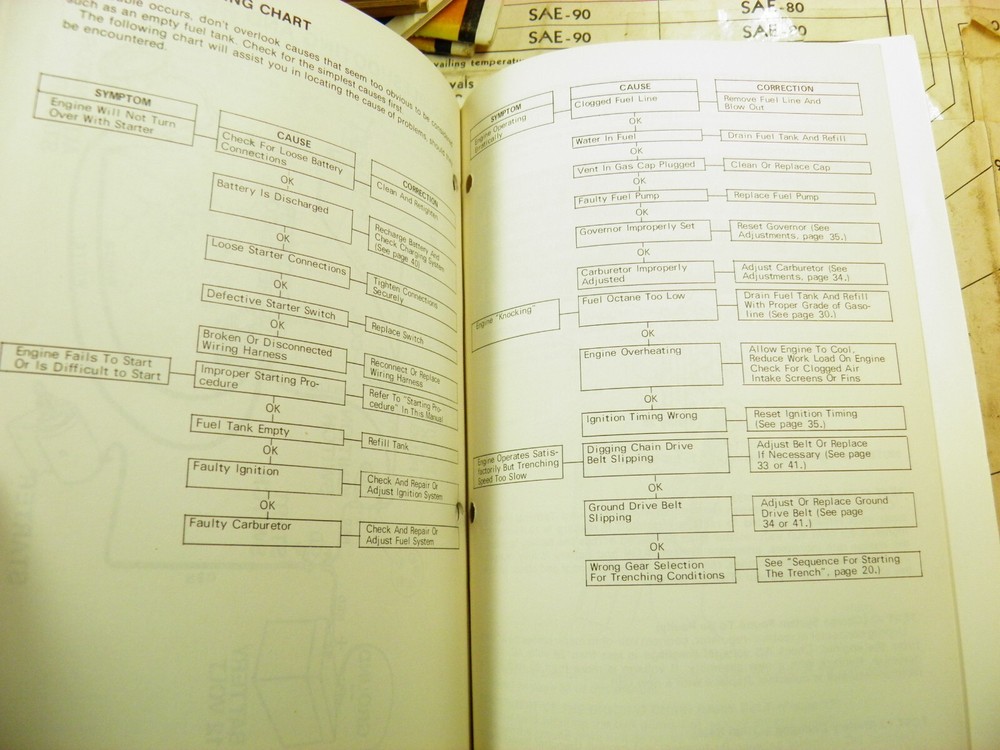 SAE-90
SAE-80
SAE-90
SAE-80
vailing temperatur
vals
NG CHART
able occurs, don't overlook causes that seem too obvious to be considered
such as an empty fuel tank. Check for the simplest causes first.
The following chart will assist you in locating the cause of problems, should they
be encountered.
SYMPTOM
Engine Will Not Turn
Over With Starter
CAUSE
Check For Loose Battery
Connections
CORRECTION
Clean And Retighten
OK
Battery Is Discharged
Recharge Battery And
Check Charging System
(See page 40)
OK
Loose Starter Connections
Tighten Connections
Securely
OK
Defective Starter Switch
Replace Switch
OK
Broken Or Disconnected
Wiring Harness
Reconnect Or Replace
Wiring Harness
Engine Fails To Start
Or Is Difficult to Start
Improper Starting Pro-
cedure
Refer To "Starting Pro-
cedure" In This Manual
OK
Fuel Tank Empty
Refill Tank
OK
Faulty Ignition
Check And Repair Or
Adjust Ignition System
OK
Faulty Carburetor
Check And Repair Or
Adjust Fuel System
SYMPTOM
Engine Operating
Erratically
CAUSE
Clogged Fuel Line
CORRECTION
Remove Fuel Line And
Blow Out
OK
Water In Fuel
Drain Fuel Tank And Refill
OK
Vent In Gas Cap Plugged
Clean Or Replace Cap
OK
Faulty Fuel Pump
Replace Fuel Pump
OK
Governor Improperly Set
Reset Governor (See
Adjustments, page 35.)
OK
Carburetor Improperly
Adjusted
Adjust Carburetor (See
Adjustments, page 34.)
Engine "Knocking"
Fuel Octane Too Low
Drain Fuel Tank And Refill
With Proper Grade of Gaso-
line (See page 30.)
OK
Engine Overheating
Allow Engine To Cool,
Reduce Work Load On Engine
Check For Clogged Air
Intake Screens Or Fins
OK
Ignition Timing Wrong
Reset Ignition Timing
(See page 35.)
Engine Operates Satis-
factorily But Trenching
Speed Too Slow
Digging Chain Drive
Belt Slipping
Adjust Belt Or Replace
If Necessary (See page
33 or 41.)
OK
Ground Drive Belt
Slipping
Adjust Or Replace Ground
Drive Belt (See page
34 or 41.)
OK
Wrong Gear Selection
For Trenching Conditions
See "Sequence For Starting
The Trench", page 20.)